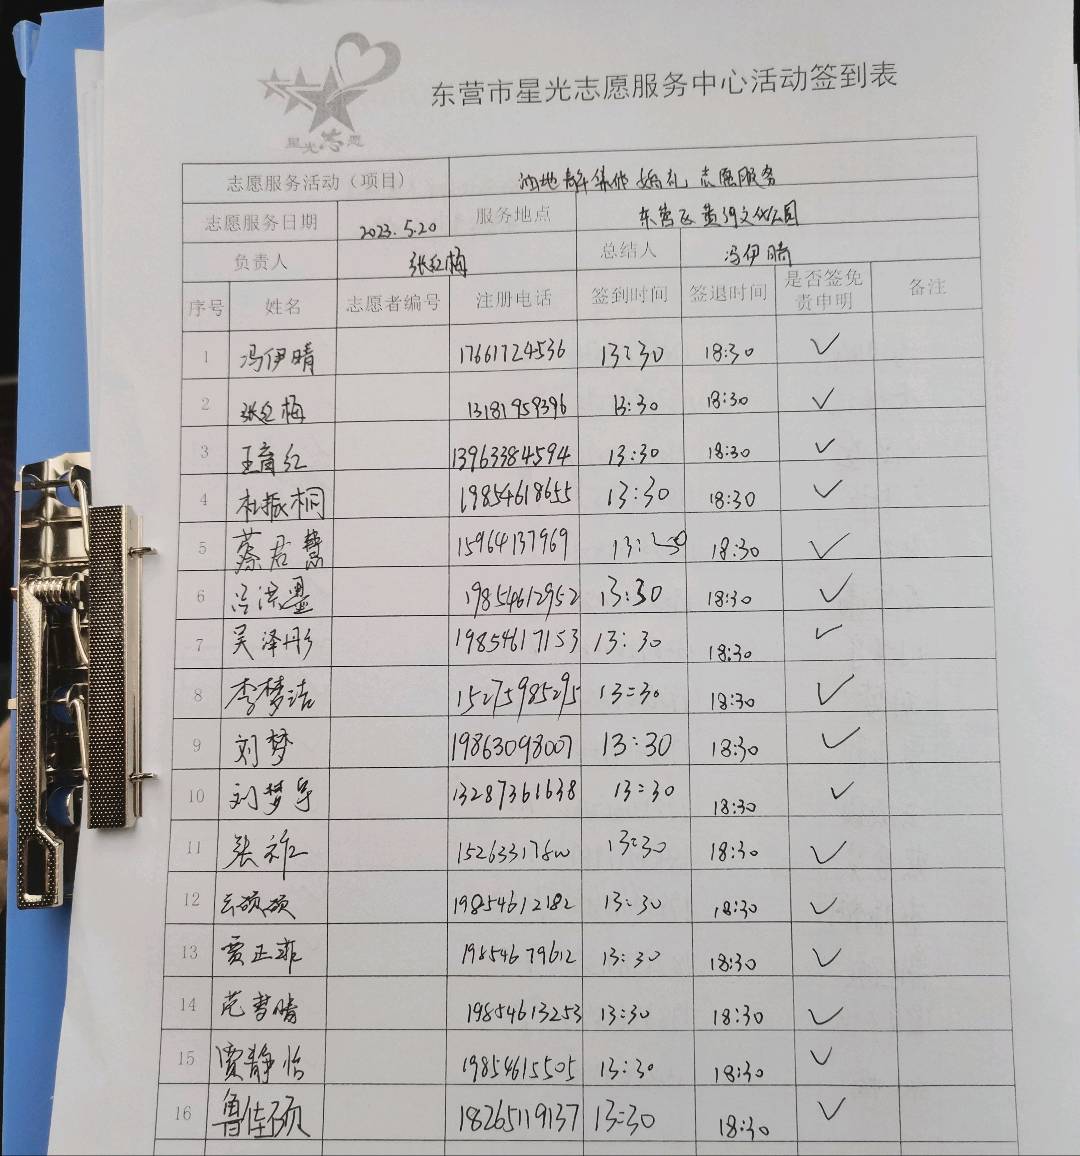 星光志愿
东营市星光志愿服务中心活动签到表
志愿服务活动（项目） 油地 集体婚礼 志愿服务
志愿服务日期 2023.5.20 服务地点 东营区黄河文化公园
负责人 张红梅 总结人 冯伊晴
序号 姓名 志愿者编号 注册电话 签到时间 签退时间 是否签免责申明 备注
1 冯伊晴 17661724536 13:30 18:30 ✓
2 张红梅 13181959396 13:30 18:30 ✓
3 王育红 13963384594 13:30 18:30 ✓
4 杜振桐 19854618655 13:30 18:30 ✓
5 蔡君慧 15964137969 13:30 18:30 ✓
6 19854612952 13:30 18:30 ✓
7 吴泽彤 19854617153 13:30 18:30 ✓
8 李梦洁 15275985295 13:30 18:30 ✓
9 刘梦 19863098007 13:30 18:30 ✓
10 刘梦 13287361638 13:30 18:30 ✓
11 张 13:30 18:30 ✓
12 硕硕 19854612182 13:30 18:30 ✓
13 贾正菲 19854679612 13:30 18:30 ✓
14 范梦晴 19854613253 13:30 18:30 ✓
15 贾静怡 19854615505 13:30 18:30 ✓
16 鲁佳硕 18265119137 13:30 18:30 ✓